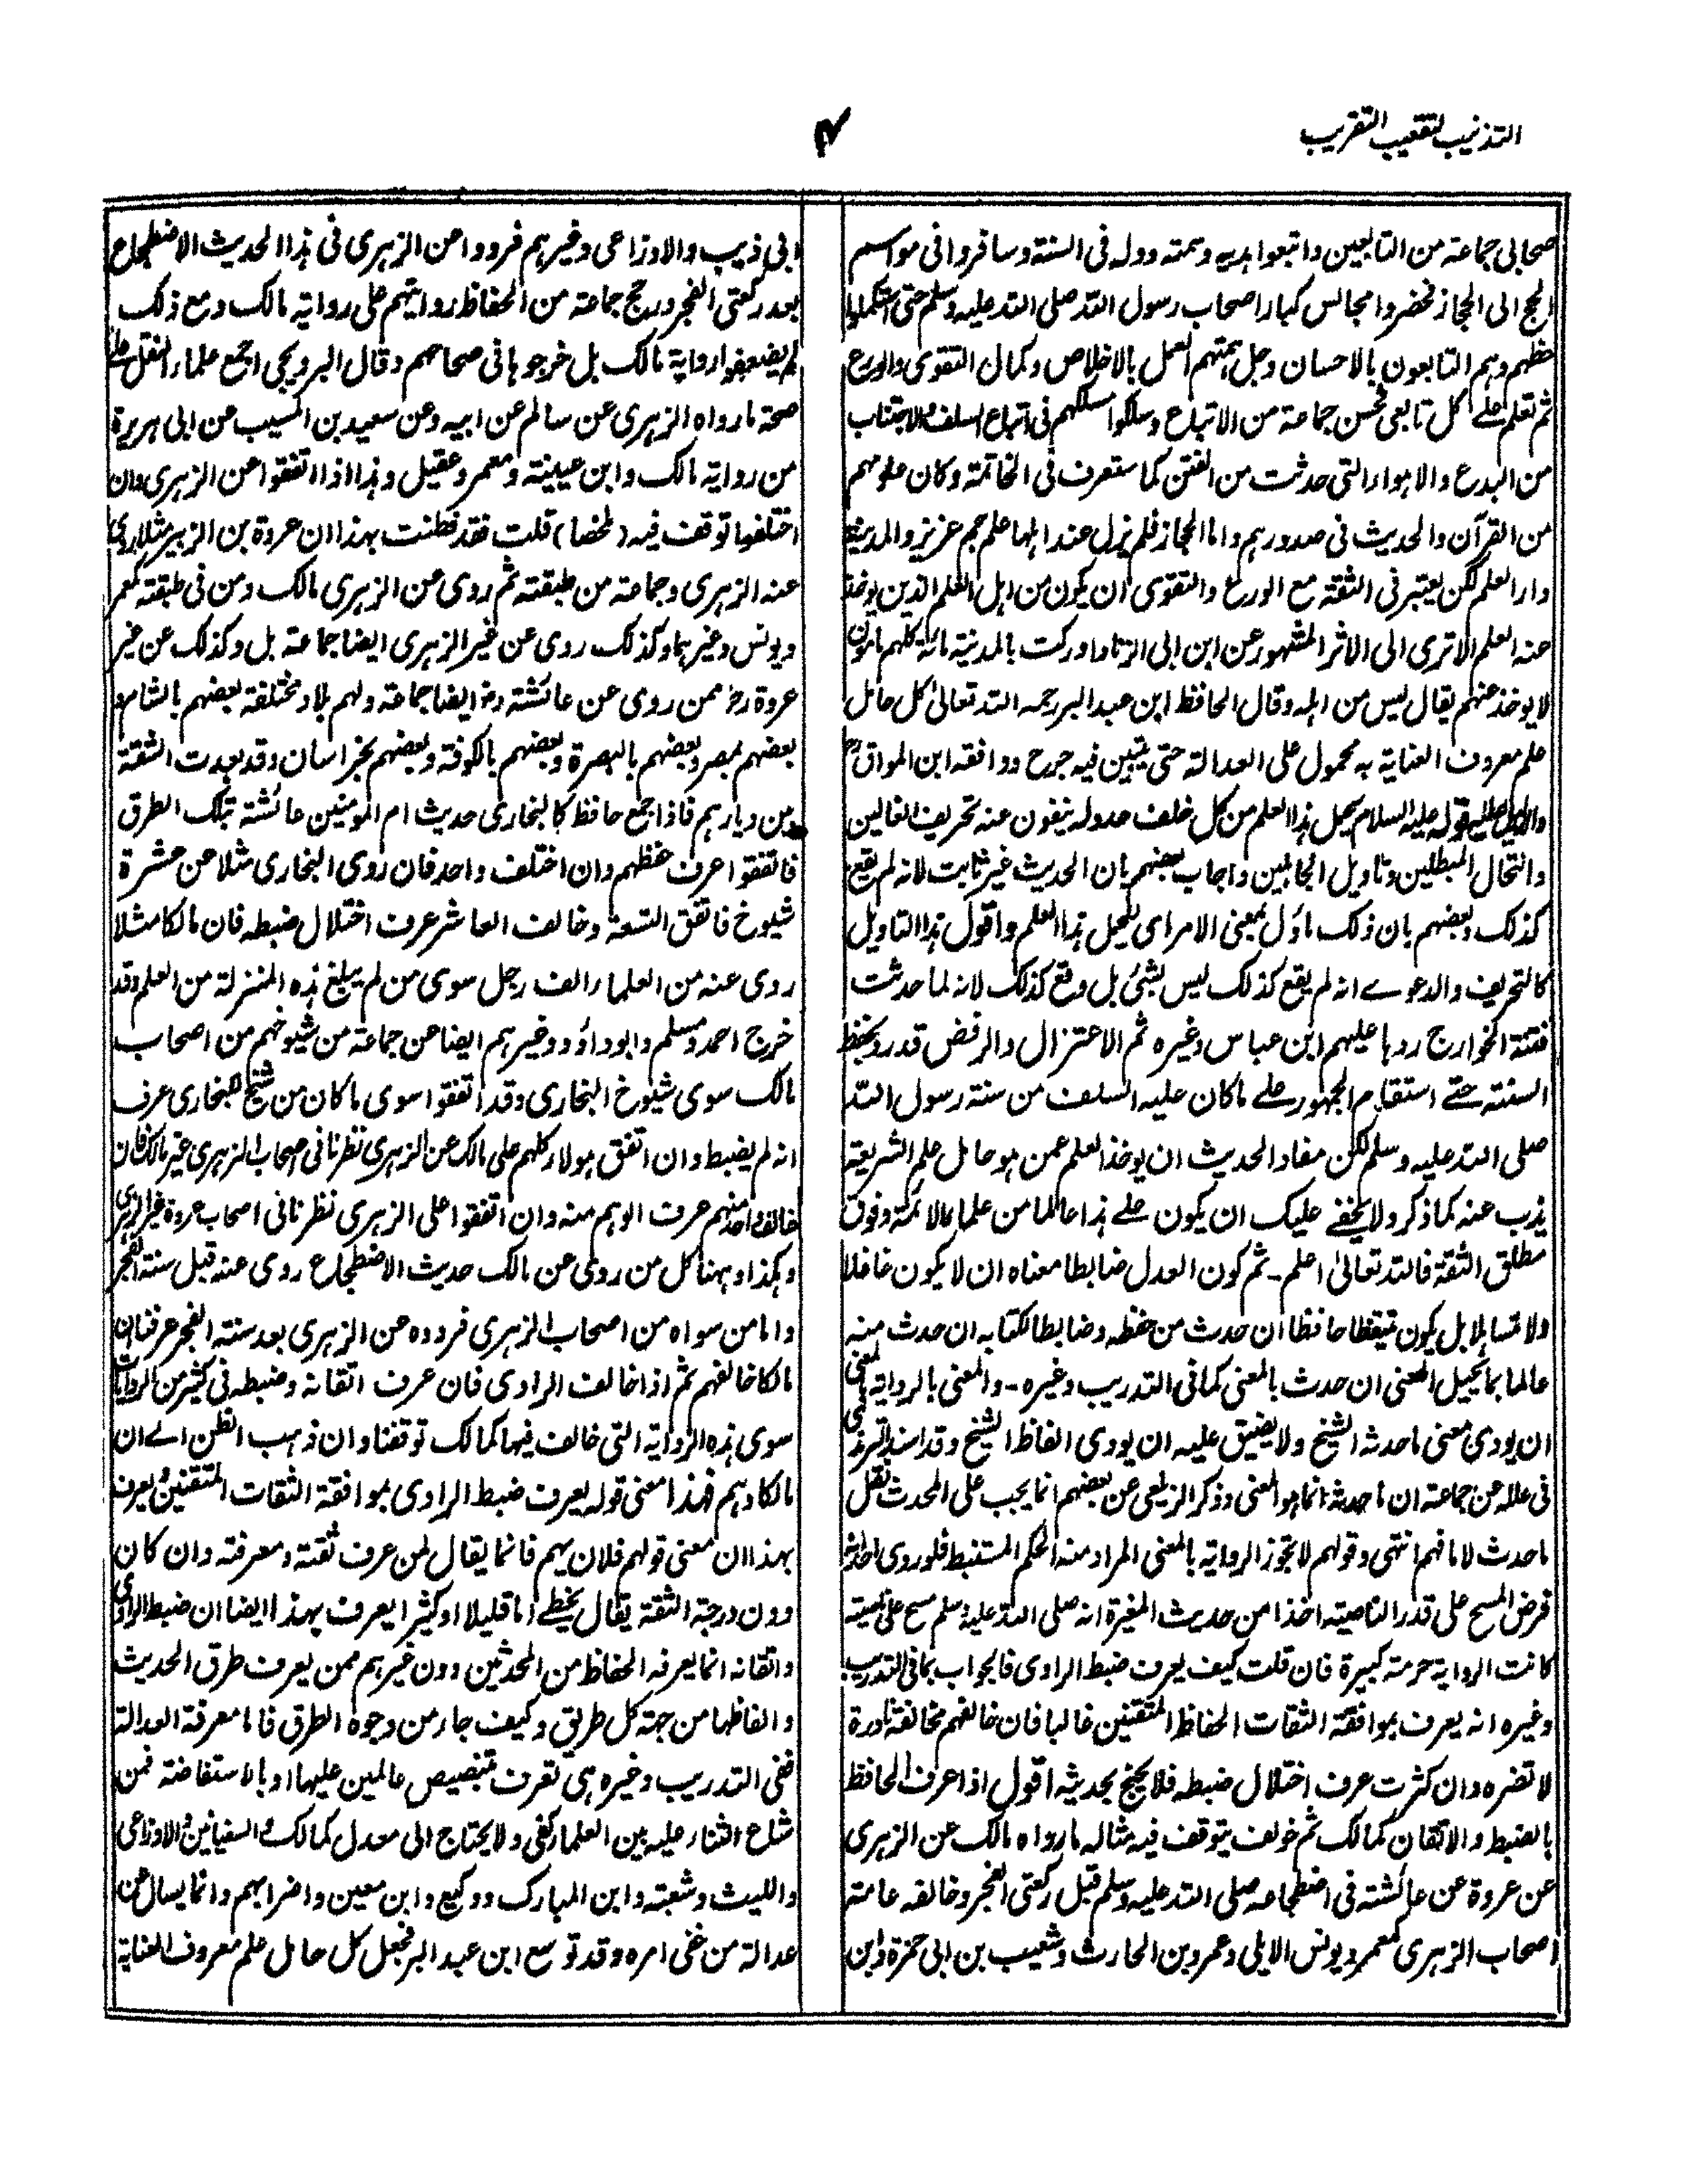 التذنيب لتعقيب التقريب
٤
صحابی جماعة من التابعین واتبعوا ہدیہ وسمتہ ودلہ فی السنة وسافروا فی مواسم
الحج الی الحجاز فحضروا مجالس کبار اصحاب رسول اللہ صلی اللہ علیہ وسلم حتی استکملوا
حظہم وہم التابعون بالاحسان وجل ہمتہم العمل بالاخلاص وکمال التقوی والورع
ثم تعلم علے کل تابعی محسن جماعة من الاتباع وسلکوا مسلکہم فی اتباع السلف والاجتناب
من البدع والاہواء التی حدثت من الفتن کما ستعرف فی الخاتمة وکان علومہم
من القرآن والحدیث فی صدورہم واما الحجاز فلم یزل عند اہلہا علم جم عزیز والمدینة
دار العلم لکن یعتبر فی الثقة مع الورع والتقوی ان یکون من اہل العلم الذین یوخذ
عنہ العلم الا تری الی الاثر المشہور عن ابن ابی الزناد ادرکت بالمدینة مائة کلہم مامون
لا یوخذ عنہم یقال لیس من اہلہ وقال الحافظ ابن عبد البر رحمہ اللہ تعالیٰ کل حامل
علم معروف العنایة بہ محمول علی العدالة حتی یتبین فیہ جرح ووافقہ ابن المواق
والدلیل علیہ قولہ علیہ السلام یحمل ہذا العلم من کل خلف عدولہ ینفون عنہ تحریف الغالین
وانتحال المبطلین وتاویل الجاہلین واجاب بعضہم بان الحدیث غیر ثابت لانہ لم یقع
کذلک وبعضہم بان ذلک ماؤل بمعنی الامر ای لیحمل ہذا العلم واقول ہذا التاویل
کالتحریف والدعوے انہ لم یقع کذلک لیس بشئ بل وقع کذلک لانہ لما حدثت
فتنة الخوارج ردہا علیہم ابن عباس وغیرہ ثم الاعتزال والرفض قد رد بحفظ
السنة حتے استقام الجمہور علے ما کان علیہ السلف من سنة رسول اللہ
صلی اللہ علیہ وسلم لکن مفاد الحدیث ان یوخذ العلم عمن ہو حامل علم الشریعة
یذب عنہ کما ذکر ولا یخفے علیک ان یکون علے ہذا عالما من علماء الائمة وفوق
مطلق الثقة فاللہ تعالیٰ اعلم ۔ ثم کون العدل ضابطا معناہ ان لا یکون غافلا
ولا متساہلا بل یکون متیقظا حافظا ان حدث من حفظہ وضابطا لکتابہ ان حدث منہ
عالما بما یحیل المعنی ان حدث بالمعنی کما فی التدریب وغیرہ ۔ والمعنی بالروایة بالمعنی
ان یودی معنی ما حدثہ الشیخ ولا یضیق علیہ ان یودی الفاظ الشیخ وقد اسند الترمذی
فی عللہ عن جماعة ان ما حدثہ انما ہو المعنی وذکر الزیلعی عن بعضہم انما یجب علی المحدث نقل
ما حدث لا ما فہم انتہی وقولہم لا تجوز الروایة بالمعنی المراد منہ الحکم المستنبط فلو روی احد
فرض المسح علی قدر الناصیة اخذا من حدیث المغیرة انہ صلی اللہ علیہ وسلم مسح علی ناصیتہ
کانت الروایة حرمة کبیرة فان قلت کیف یعرف ضبط الراوی فالجواب بما فی التدریب
وغیرہ انہ یعرف بموافقة الثقات الحفاظ المتقنین غالبا فان خالفہم مخالفة نادرة
لا تضرہ وان کثرت عرف اختلال ضبطہ فلا یحتج بحدیثہ اقول اذا عرف الحافظ
بالضبط والاتقان کمالک ثم خولف یتوقف فیہ مثالہ ما رواہ مالک عن الزہری
عن عروة عن عائشة فی اضطجاعہ صلی اللہ علیہ وسلم قبل رکعتی الفجر وخالفہ عامة
اصحاب الزہری کمعمر ویونس الایلی وعمرو بن الحارث وشعیب بن ابی حمزة وابن
ابی ذیب والاوزاعی وغیرہم فرووا عن الزہری فی ہذا الحدیث الاضطجاع
بعد رکعتی الفجر ورجح جماعة من الحفاظ روایتہم علی روایة مالک ومع ذلک
لم یضعفوا روایة مالک بل خرجوہا فی صحاحہم وقال البردیجی اجمع علماء النقل علے
صحة ما رواہ الزہری عن سالم عن ابیہ وعن سعید بن المسیب عن ابی ہریرة
من روایة مالک وابن عیینة ومعمر وعقیل وہذا اذا اتفقوا عن الزہری وان
اختلفوا توقف فیہ (ملخصا) قلت فقد فطنت بہذا ان عروة بن الزبیر مثلا روی
عنہ الزہری وجماعة من طبقتہ ثم روی عن الزہری مالک ومن فی طبقتہ کمعمر
ویونس وغیرہما وکذلک روی عن غیر الزہری ایضا جماعة بل وکذلک عن غیر
عروة رح ممن روی عن عائشة رض ایضا جماعة ولہم بلاد مختلفة بعضہم بالشام و
بعضہم بمصر وبعضہم بالبصرة وبعضہم بالکوفة وبعضہم بخراسان وقد بعدت الشقة
بین دیارہم فاذا جمع حافظ کالبخاری حدیث ام المومنین عائشة بتلک الطرق
فاتفقوا عرف حفظہم وان اختلف واحد فان روی البخاری مثلا عن عشرة
شیوخ فاتفق التسعة وخالف العاشر عرف اختلال ضبطہ فان مالکا مثلا
روی عنہ من العلماء الف رجل سوی من لم یبلغ ہذہ المنزلة من العلم وقد
خرج احمد ومسلم وابو داؤد وغیرہم ایضا عن جماعة من شیوخہم من اصحاب
مالک سوی شیوخ البخاری وقد اتفقوا سوی ما کان من شیخ للبخاری عرف
انہ لم یضبط وان اتفق ہولاء کلہم علی مالک عن الزہری نظرنا فی اصحاب الزہری غیر مالک فان
خالف واحد منہم عرف الوہم منہ وان اتفقوا علی الزہری نظرنا فی اصحاب عروة غیر الزہری
وہکذا وہہنا کل من روی عن مالک حدیث الاضطجاع روی عنہ قبل سنة الفجر
واما من سواہ من اصحاب الزہری فرووہ عن الزہری بعد سنة الفجر عرفنا ان
مالکا خالفہم ثم اذا خالف الراوی فان عرف اتقانہ وضبطہ فی کثیر من الروایات
سوی ہذہ الروایة التی خالف فیہا کمالک توقفنا وان ذہب الظن الے ان
مالکا وہم فہذا معنی قولہ یعرف ضبط الراوی بموافقة الثقات المتقنین ویعرف
بہذا ان معنی قولہم فلان یہم فانما یقال لمن عرف ثقتہ ومعرفتہ وان کان
دون درجة الثقة یقال یخطے اما قلیلا او کثیرا یعرف بہذا ایضا ان ضبط الراوی
واتقانہ انما یعرفہ الحفاظ من المحدثین دون غیرہم ممن یعرف طرق الحدیث
والفاظہا من جہة کل طریق وکیف جاء من وجوہ الطرق فاما معرفة العدالة
ففی التدریب وغیرہ ہی تعرف بتنصیص عالمین علیہا او بالاستفاضة فمن
شاع الثناء علیہ بین العلماء کفی ولا یحتاج الی معدل کمالک والسفیانین والاوزاعی
واللیث وشعبة وابن المبارک ووکیع وابن معین واضرابہم وانما یسال عن
عدالة من خفی امرہ وقد توسع ابن عبد البر فجعل کل حامل علم معروف العنایة